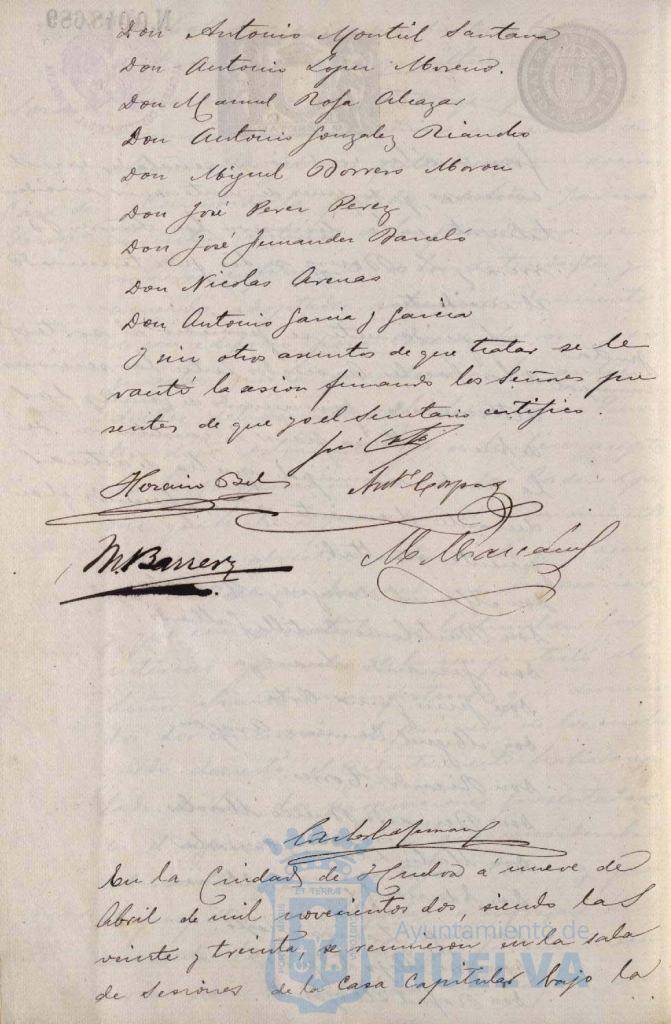 Nº 0.048.689
Don Antonio Montiel Santana
Don Antonio Lopez Moreno.
Don Manuel Rofa Alcazar
Don Antonio Gonzalez
Don Miguel Borrero Moron
Don José Perez Perez
Don José Fernandez Barceló
Don Nicolas Arenas
Don Antonio Garcia y Garcia
Y sin otros asuntos de que tratar se le
vantó la sesion firmando los Señores pre
sentes de que yo el Secretario certifico.
Horacio Bel
Antº Corpas
M. Barrera
En la Ciudad de Huelva a nueve de
Abril de mil novecientos dos, siendo las
veinte y treinta, se reunieron en la sala
de sesiones de la Casa Capitular bajo la
Ayuntamiento de
HUELVA